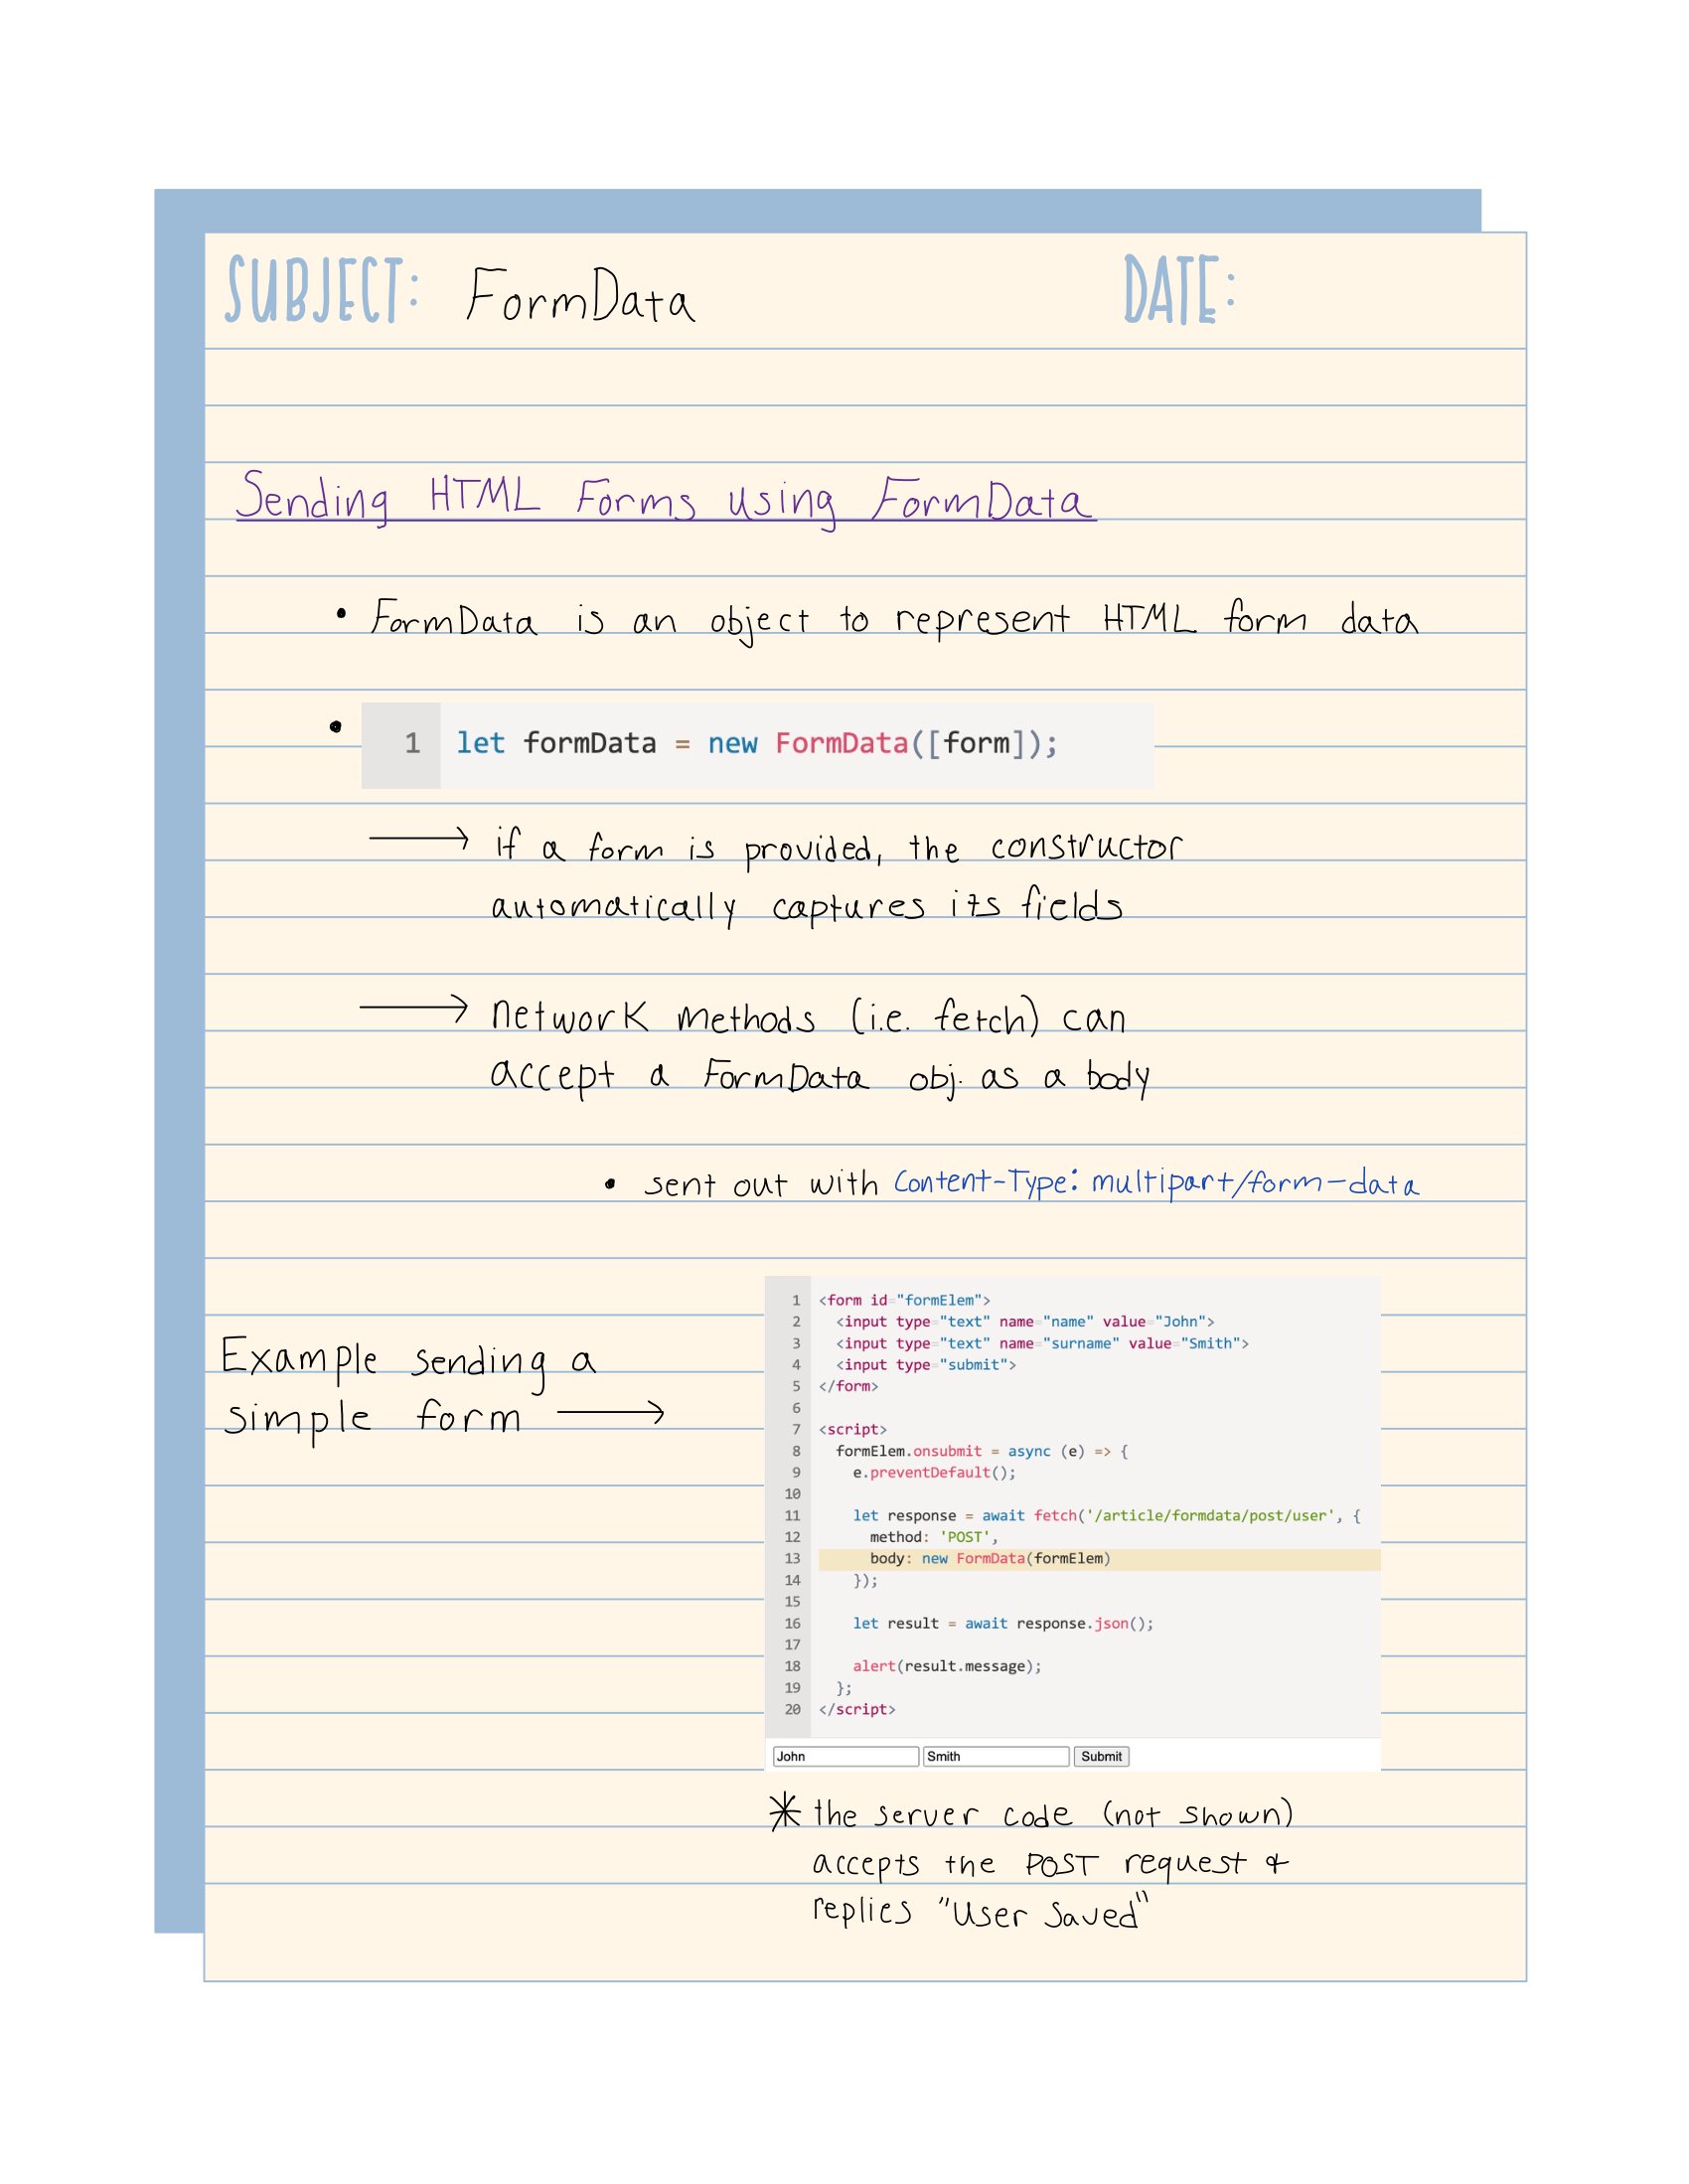 SUBJECT: FormData DATE:
Sending HTML Forms using FormData
• FormData is an object to represent HTML form data
• 1 let formData = new FormData([form]);
⟶ if a form is provided, the constructor
automatically captures its fields
⟶ network methods (i.e. fetch) can
accept a FormData obj. as a body
• sent out with Content-Type: multipart/form-data
Example sending a
simple form ⟶
1 <form id="formElem">
2 <input type="text" name="name" value="John">
3 <input type="text" name="surname" value="Smith">
4 <input type="submit">
5 </form>
6
7 <script>
8 formElem.onsubmit = async (e) => {
9 e.preventDefault();
10
11 let response = await fetch('/article/formdata/post/user', {
12 method: 'POST',
13 body: new FormData(formElem)
14 });
15
16 let result = await response.json();
17
18 alert(result.message);
19 };
20 </script>
John Smith Submit
* the server code (not shown)
accepts the POST request &
replies "User Saved"